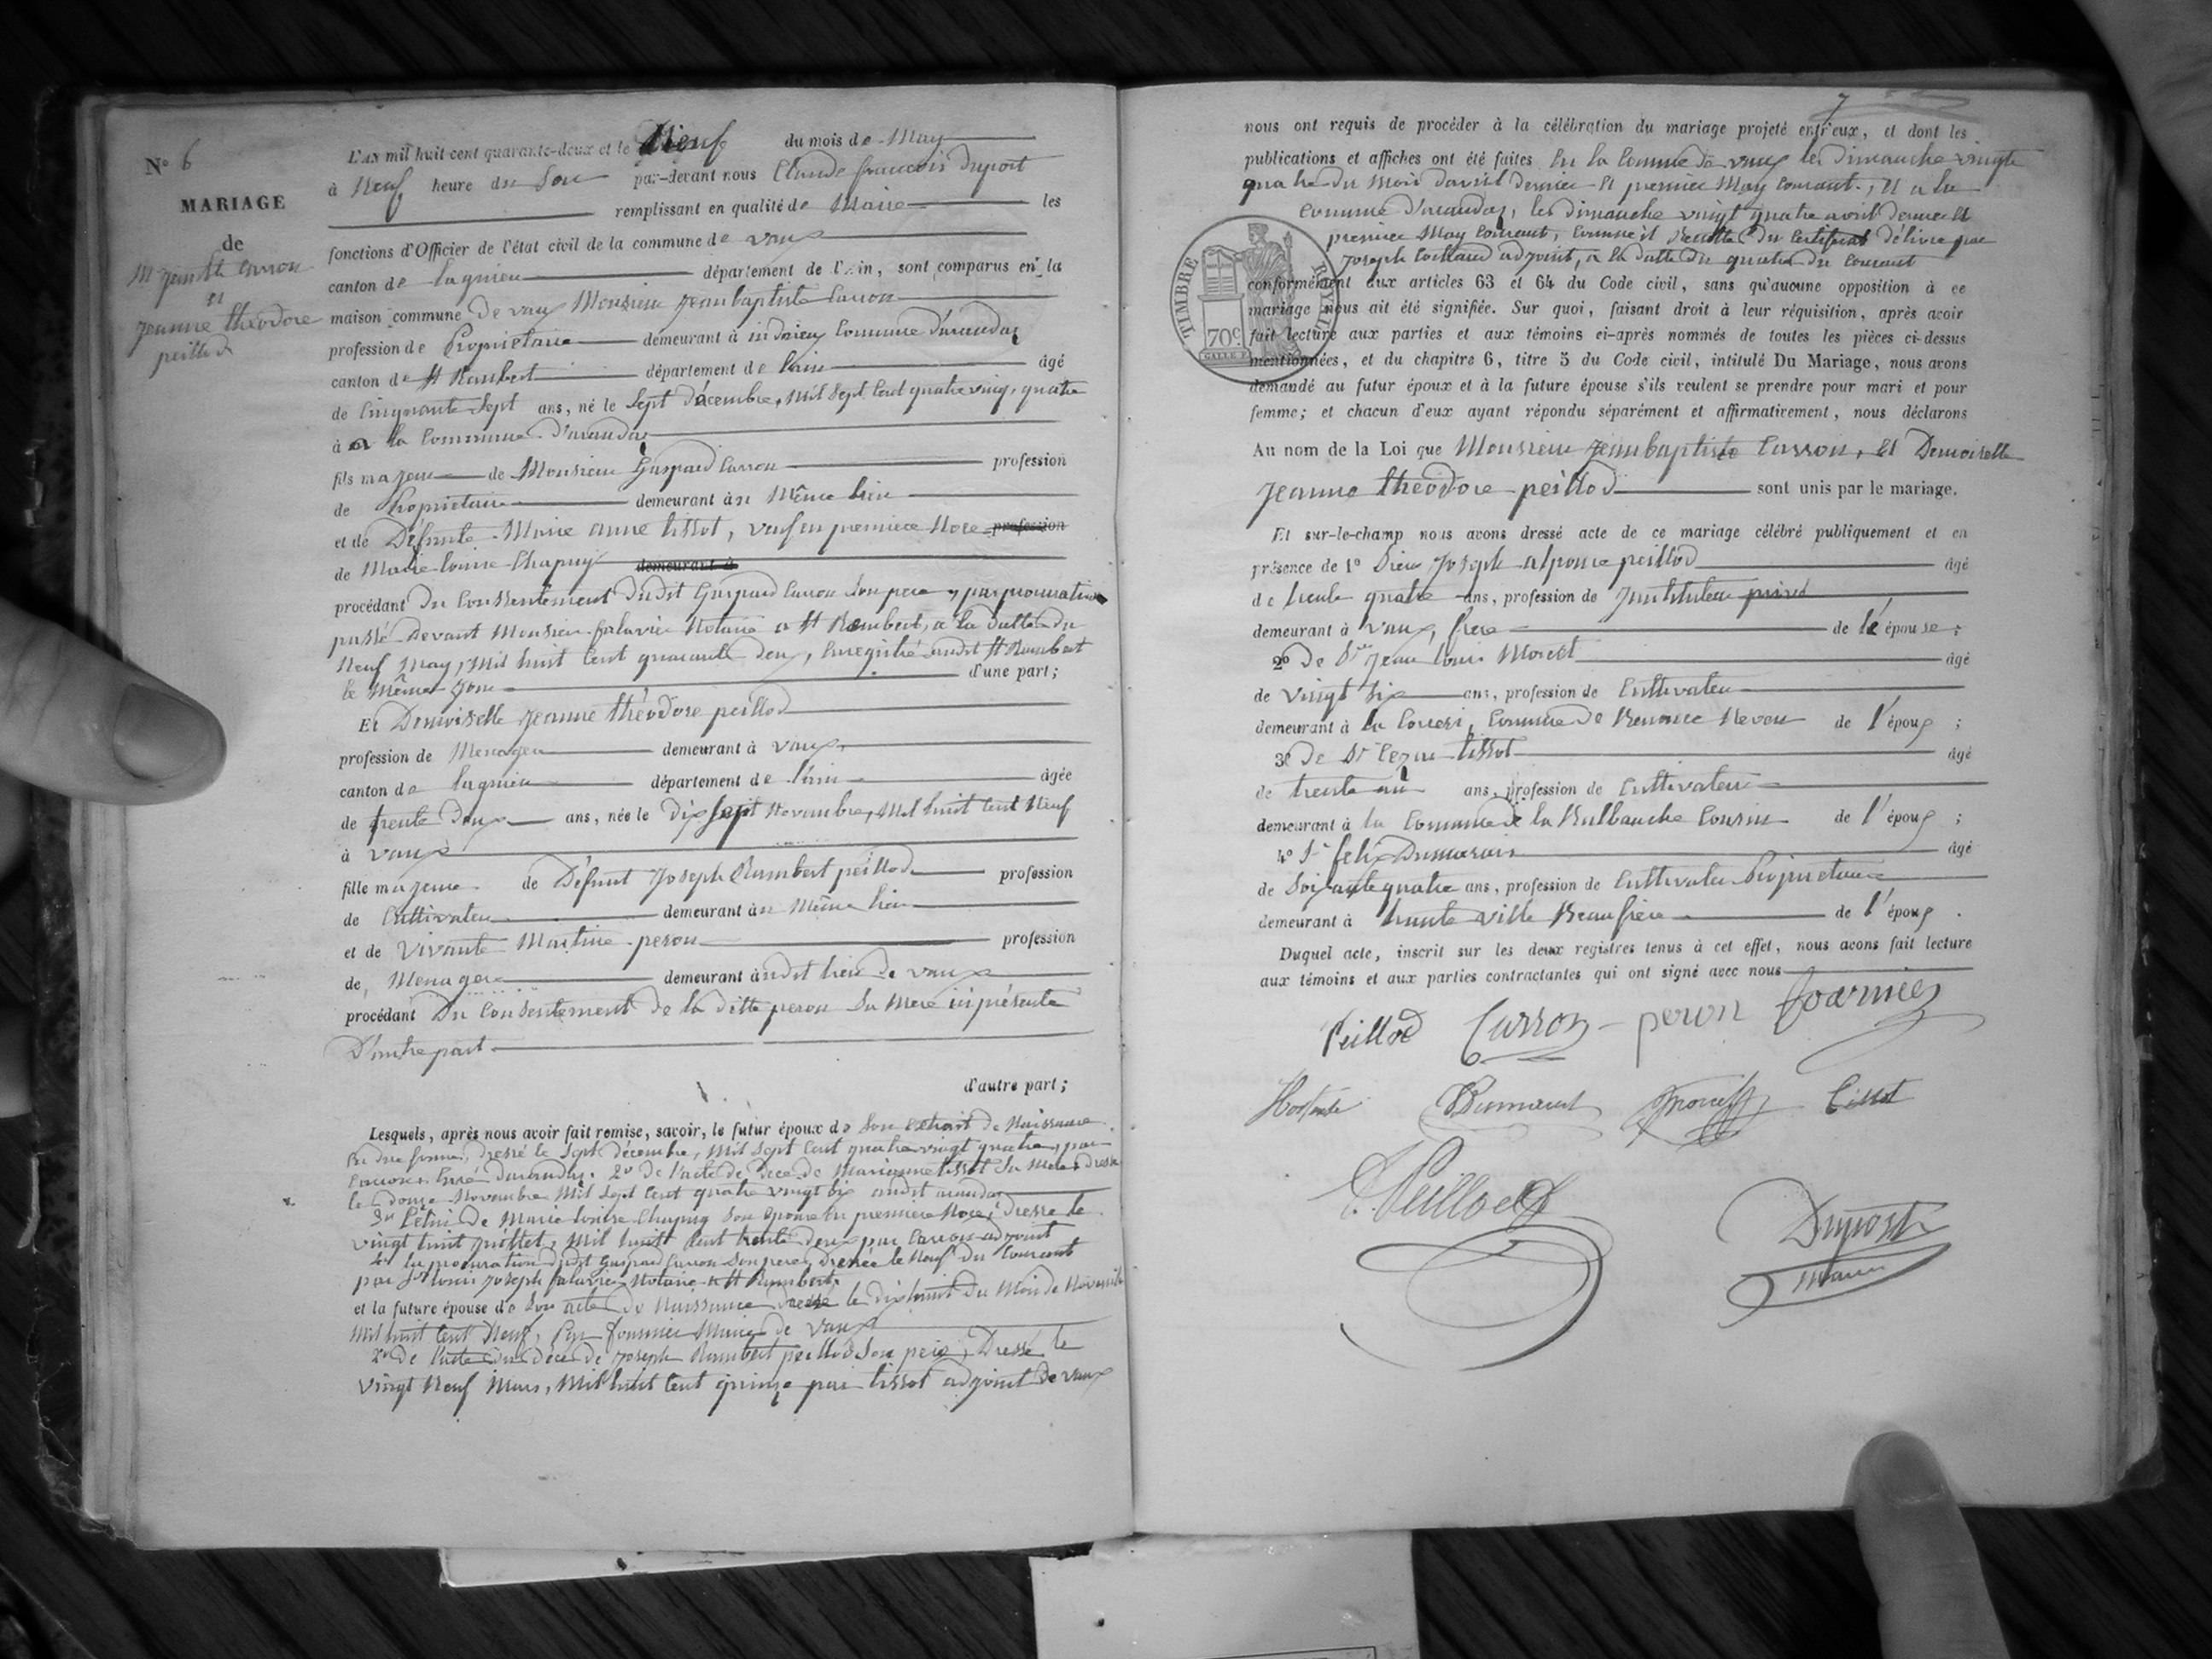 N° 6
MARIAGE
de
M. Jean Bte Carron
et
Jeanne théodore
peillod
L'AN mil huit cent quarante-deux et le Neuf du mois de May
à Neuf heure du Soir par-devant nous Claude francois Duport
remplissant en qualité de Maire les
fonctions d'Officier de l'état civil de la commune de vaux
canton de lagnieu département de l'Ain, sont comparus en la
maison commune De vaux Monsieur Jean baptiste Carron
profession de Propriétaire demeurant à indrieux Commune d'arandas
canton de St Rambert département de l'ain âgé
de Cinquante Sept ans, né le Sept décembre, Mil Sept Cent quatre vingt quatre
à la Commune d'arandas
fils majeur de Monsieur Gaspard Carron profession
de Propriétaire demeurant au Même lieu
et de Défunte Marie anne tissot, veuf en premiere Noce profession
de Marie louise Chapuy demeurant à
procédant du Consentement dudit Gaspard Carron Son pere, par procuration
passé Devant Monsieur falavier Notaire a St Rambert, a la datte du
Neuf May, Mil huit Cent quarante deux, Enregistré audit St Rambert
le Même Jour d'une part;
Et Demoiselle Jeanne théodore peillod
profession de Menagere demeurant à vaux
canton de lagnieu département de l'ain âgée
de trente Deux ans, née le Dix Sept Novembre, Mil huit Cent Neuf
à vaux
fille majeure de Défunt Joseph Rambert peillod profession
de Cultivateur demeurant au Même lieu
et de Vivante Martine peron profession
de Menagere demeurant audit lieu de vaux
procédant Du Consentement de la ditte peron Sa Mere ici présente
D'autre part
d'autre part;
Lesquels, après nous avoir fait remise, savoir, le futur époux de Son Extrait de Naissance
En due forme, dressé le Sept décembre, Mil Sept Cent quatre vingt quatre, par
Curé Darandas. 2° de l'acte de décé de Marianne tissot Sa Mere, dressé
le Douze Novembre Mil Sept Cent quatre vingt Six audit arandas
3° Celui de Marie louise Chapuy Son Epouse En premiere Noce, Dressé le
vingt huit Juillet, Mil huit Cent trente Deux par Carron adjoint
4° la procuration dudit Gaspard Carron Son pere, Dressée le Neuf Du Courant
par Sr louis Joseph falavier Notaire a St Rambert.
et la future épouse de Son acte de Naissance Dressé le dix huit Du Mois de Novembre
Mil huit Cent Neuf, Par fournier Maire de vaux
2° de l'acte du décé de Joseph Rambert peillod Son pere, Dressé le
vingt Neuf Mars, Mil huit Cent quinze par tissot adjoint de vaux
7
nous ont requis de procéder à la célébration du mariage projeté entr'eux, et dont les
publications et affiches ont été faites En la Commune de vaux les dimanche vingt
quatre du Mois davril Dernier Et premier May Courant, Et a la
Commune d'arandas, les dimanche vingt quatre avril dernier Et
premier May Courant, Comme il Resulte du Certificat délivré par
Joseph adjoint, a la datte du quatre du Courant
TIMBRE ROYAL
70c
conformément aux articles 63 et 64 du Code civil, sans qu'aucune opposition à ce
mariage nous ait été signifiée. Sur quoi, faisant droit à leur réquisition, après avoir
fait lecture aux parties et aux témoins ci-après nommés de toutes les pièces ci-dessus
mentionnées, et du chapitre 6, titre 5 du Code civil, intitulé Du Mariage, nous avons
demandé au futur époux et à la future épouse s'ils veulent se prendre pour mari et pour
femme; et chacun d'eux ayant répondu séparément et affirmativement, nous déclarons
Au nom de la Loi que Monsieur Jean baptiste Carron, Et Demoiselle
Jeanne théodore peillod sont unis par le mariage.
Et sur-le-champ nous avons dressé acte de ce mariage célébré publiquement et en
présence de 1° Sieur Joseph alponse peillod âgé
de trente quatre ans, profession de Jnstituteur privé
demeurant à vaux, frere de l'épouse;
2° De Sr Jean louis Morett âgé
de vingt Six ans, profession de Cultivateur
demeurant à Commune de Neveu de l'époux;
3° De Sr tissot âgé
de trente un ans, profession de Cultivateur
demeurant à la Commune de la Cousin de l'époux;
4° Sr felix Dumarais âgé
de Soixante quatre ans, profession de Cultivateur Propriétaire
demeurant à haute ville Beaufrère de l'époux.
Duquel acte, inscrit sur les deux registres tenus à cet effet, nous avons fait lecture
aux témoins et aux parties contractantes qui ont signé avec nous
Peillod Carron peron fournier
Tissot
Peillod
Duport
Maire